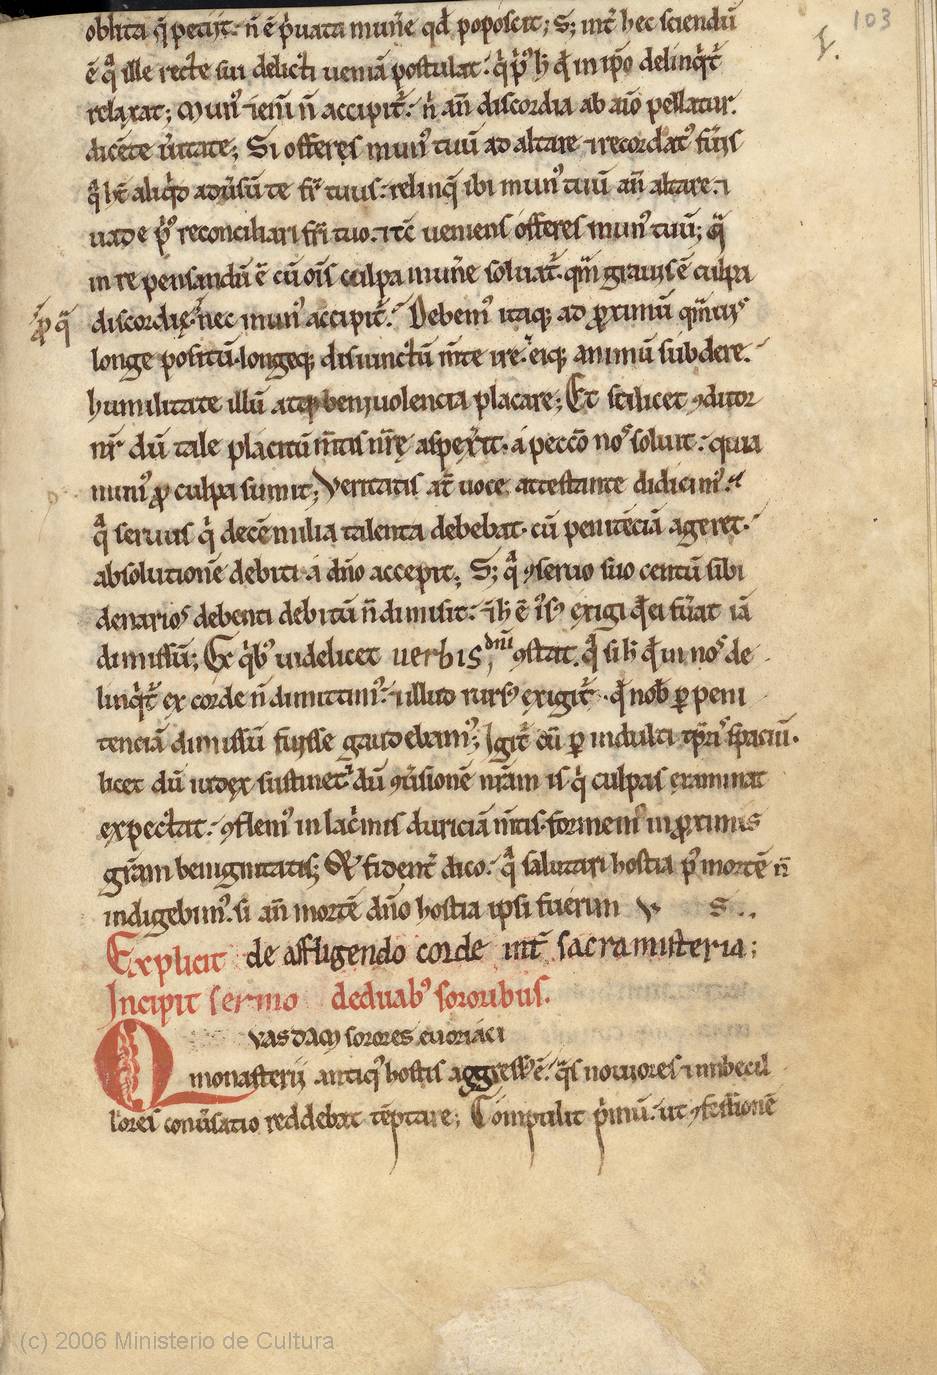 103
I.
oblita q̄ petijt. n̄ ē p̓uata mun̄e qd̄ poposcit; S; int̄ hec sciendū
ē qͣ ille recte sui delicti ueniā postulat. qͥ pͥꝰ h̄ qđ in ip̄o delinqͥt̄
relaxat; Munꝰ .ien̄i n̄ accipit̄. nͥ an̄ discordia ab aīo pellatur.
dicēte ūitate; Si offeres munꝰ tuū ad altare ⁊ recordatꝰ fūis
qͥ h̄t aliqͥd adūsū te fr̄ tuus. relinq̄ ibi munꝰ tuū an̄ altare. ⁊
uade pͥꝰ reconciliari fr̄i tuo. ⁊ tē ueniens offeres munꝰ tuū; qͣ
in re pensandū ē cū oīs culpa mun̄e soluat̄. qm̄ grauis ē culpa
ꝓ qͣ
discordię. nec munꝰ accipit̄. Debemꝰ itaq; ad ꝓximū qm̄uis
longe positū. longeq; disiunctū m̄te ire. eiq; animū subdere.
humilitate illū atq; beniuolencia placare; Et scilicet ꝯditor
nr̄ dū tale placitū m̄tis nr̄ę aspexīt. á pecc̄o noſ soluit. quia
munꝰ ꝓ culpa sumit; Veritatis at̄ uoce attestante didicimꝰ.
qͣ seruus qͥ decē milia talenta debebat. cū penitēciā ageret.
absolutionē debiti á dn̄o accepit; S; qͣ ꝯseruo suo centū sibi
denarioſ debenti debitū n̄ dimisit. ih̄ ē iſꝰ exigi qđ ei fūat iā
dimissū; Ex qͥbꝰ uidelicet uerbis dn̄i ꝯstat. qͣ si h̄ qđ in noſ de
linqͥt̄ ex corde n̄ dimittimꝰ. ⁊ illud rursꝰ exigit̄. qđ nob̄ ꝑ peni
tenciā dimissū fuisse gaudebamꝰ; Igit̄ dū ꝑ indulti tp̄riſ spaciū.
licet dū iudex sustinet. dū ꝯūsionē nr̄am is qͥ culpas examinat
expectat. ꝯflemꝰ in lacͥmis duriciā m̄tis. formemꝰ in ꝓximis
gr̄am benignitatis; & fident̄ dico. qͣ salutari hostia pꝰ mortē n̄
indigebimꝰ. si an̄ mortē dn̄o hostia ipsi fuerim v s..
Explicit de affligendo corde int̄ sacra misteria;
Incipit sermo de duabꝰ sororibus.
QVASDAM sorores euoriaci
monasterij antiqꝰ hostis aggressꝰ ē. qͣs nouiores ⁊ inbecil
liores conūsatio reddebat tēptare; Compulit pͥmū. ut ꝯfessionē
(c) 2006 Ministerio de Cultura